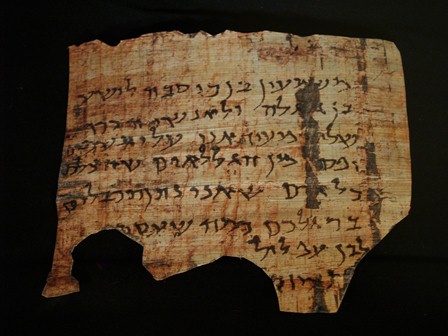 משמעון בן כוסבה לישע
בן גלגלה ולאנשי הכרך
שלום מעיד אני עלי תשמים
מן הגללאים שהצלכם
כל אדם שאני נתן תכבלים
ברגלכם כמה שעסתי
לבן עפלול